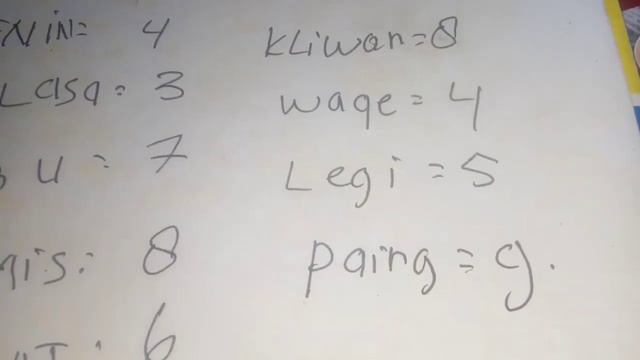 ENIN= 4
LASA= 3
U = 7
MIS: 8
6
KLIWAN=8
WAGE=4
LEGI=5
PAING=9.